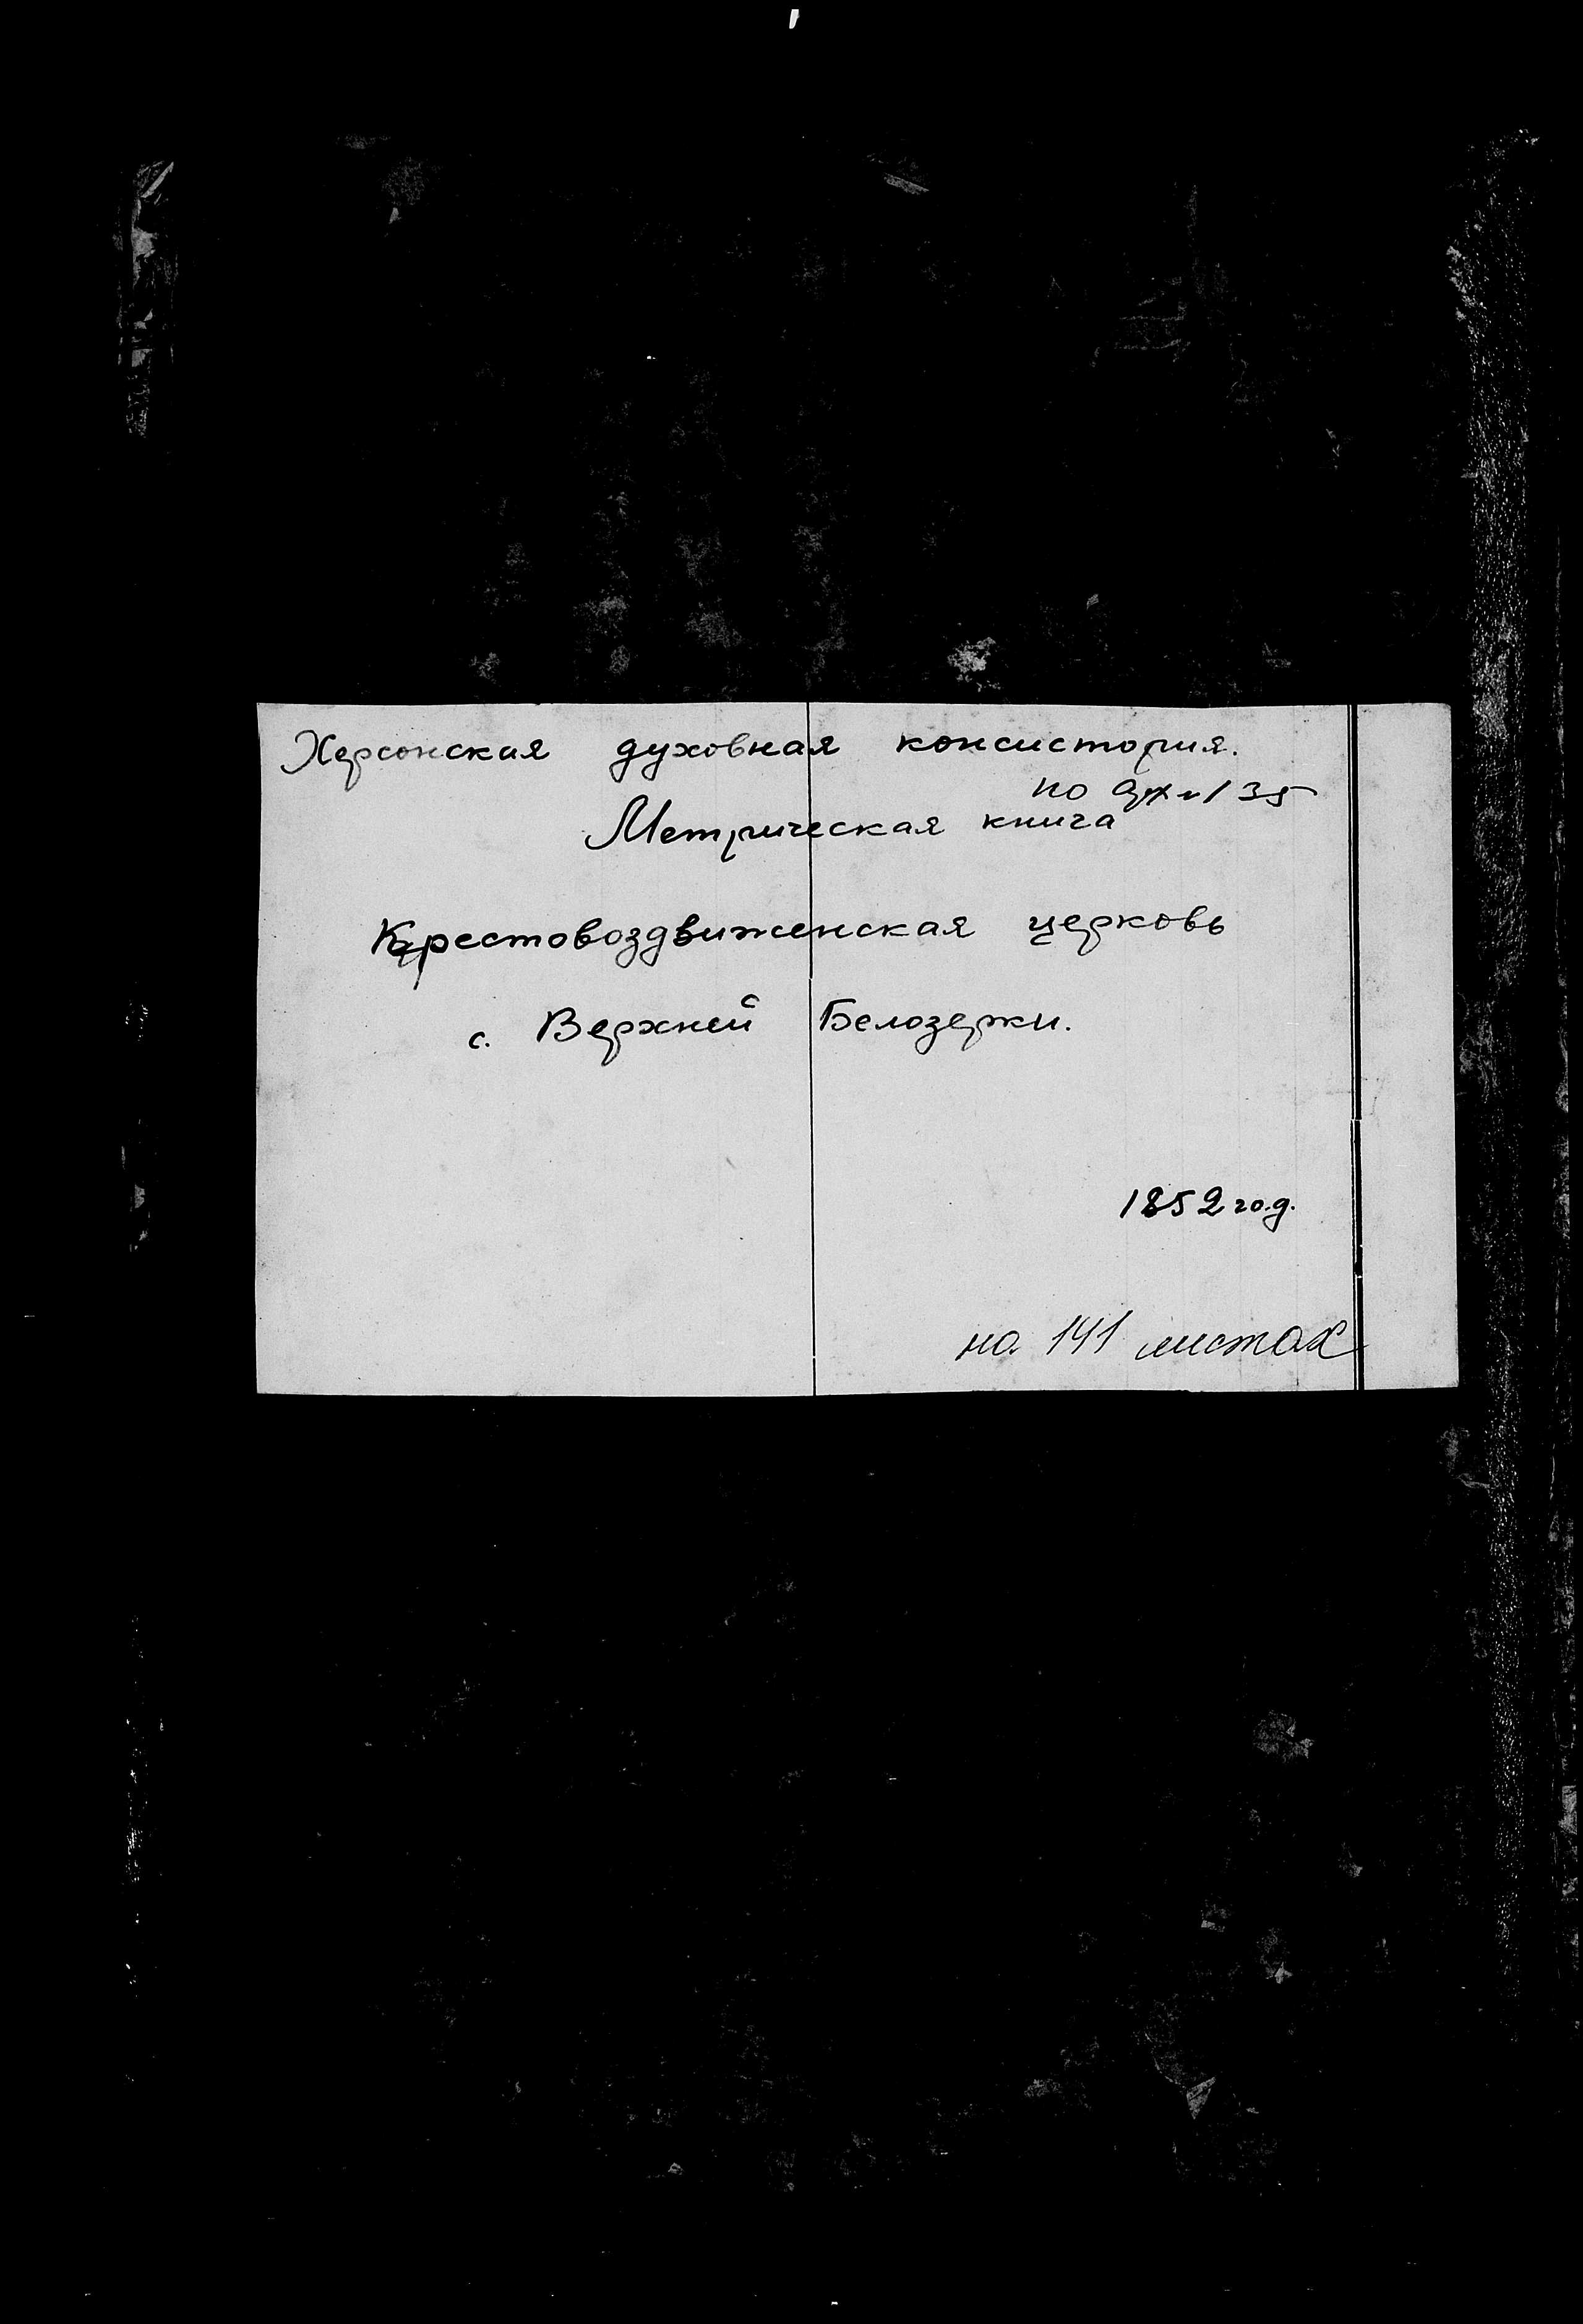 Херсонская духовная консистория.
по 135
Метрическая книга
Крестовоздвиженская церковь
с. Верхней Белозерки.
1852 год.
на 141 листах